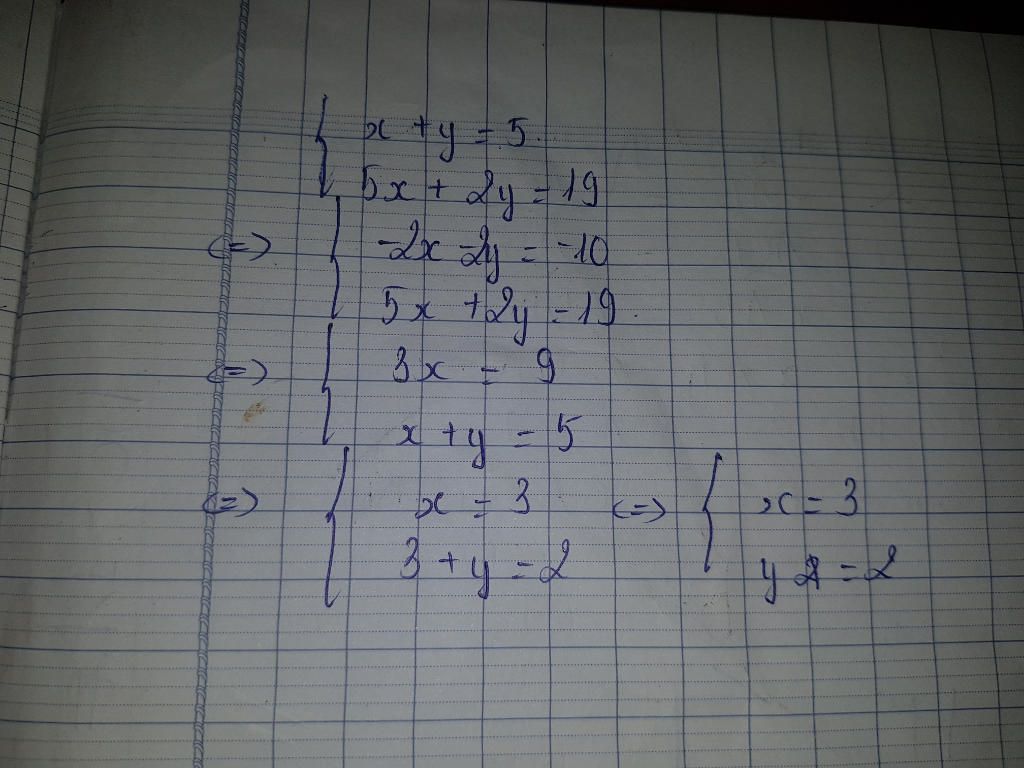 x + y = 5
5x + 2y = 19
(=) -2x -2y = -10
5x + 2y = 19
(=) 3x = 9
x + y = 5
(=) x = 3 (=) x = 3
3 + y = 2 y = 2